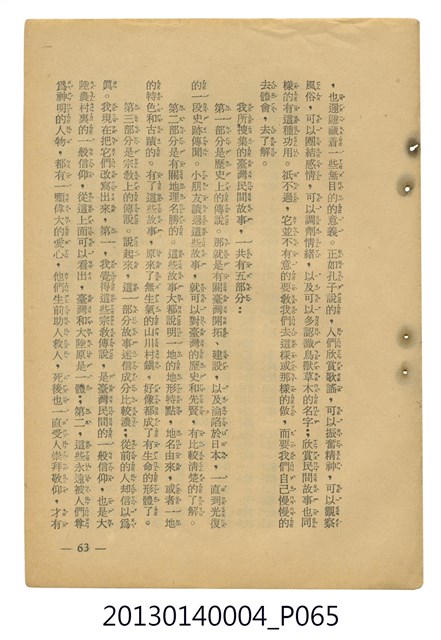 ，也還隱藏着一些無目的的意義。正如孔子說的，人們欣賞歌謠，可以振奮精神，可以觀察
風俗，可以團結感情，可以調劑情緒，以及可以多認識鳥獸草木的名字；欣賞民間故事也同
樣的有這種功用。祇不過，它並不有意的要教我們去這樣或那樣的做，而要我們自己慢慢的
去體會，去了解。
我所搜集的臺灣民間故事，一共有五部分：
第一部分是歷史上的傳說。那就是有關臺灣開拓、建設，以及淪陷於日本，一直到光復
的一段史跡傳聞。小朋友讀過這些故事，就可以對臺灣的歷史和先賢，有比較清楚的了解。
第二部分是有關地理名勝的。這些故事大概說明一地的地形特點，地名由來，或者一地
的特色和古蹟的。有了這些故事，原來了無生氣的山川村鎮，好像都成了有生命的形體了。
第三部分是宗教上的傳說。說起來，這一部分故事迷信成分比較濃；從前的人却信以爲
眞。我現在把它們改寫出來，第一，我覺得這些宗教傳說，是臺灣民間的一般信仰，也是大
陸農村裏的一般信仰，從這上面可以看出，臺灣和大陸原是一體；第二，這些永遠被人們尊
爲神明的人物，都有一顆偉大的愛心，他們生前助人救人，死後也一直受人崇拜敬仰，才有
— 63 —
20130140004_P065